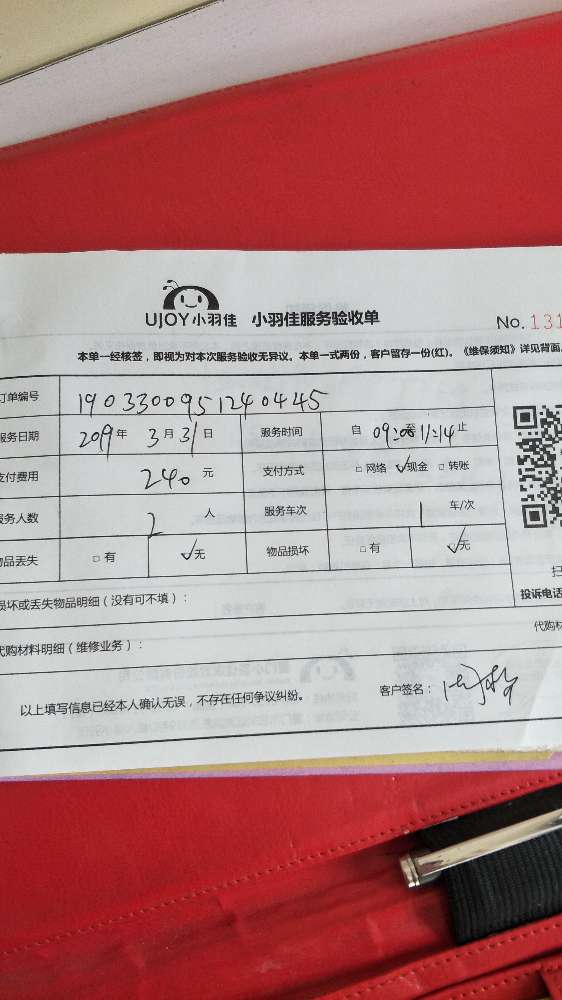 UJOY小羽佳 小羽佳服务验收单
No. 131
本单一经核签，即视为对本次服务验收无异议。本单一式两份，客户留存一份(红)。《维保须知》详见背面。
订单编号 1903300951240445
服务日期 2019年 3月31日 服务时间 自 09:08至11:14止
支付费用 240元 支付方式 □网络 ✓现金 □转账
服务人数 2人 服务车次 1车/次
物品丢失 □有 ✓无 物品损坏 □有 ✓无
损坏或丢失物品明细（没有可不填）：
投诉电话
代购材料明细（维修业务）：
代购材
以上填写信息已经本人确认无误，不存在任何争议纠纷。 客户签名：